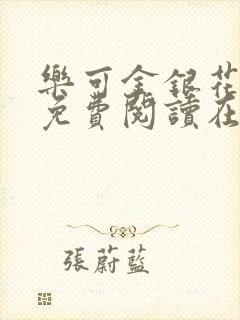 樂可金銀花
免費閱讀在
張蔚藍